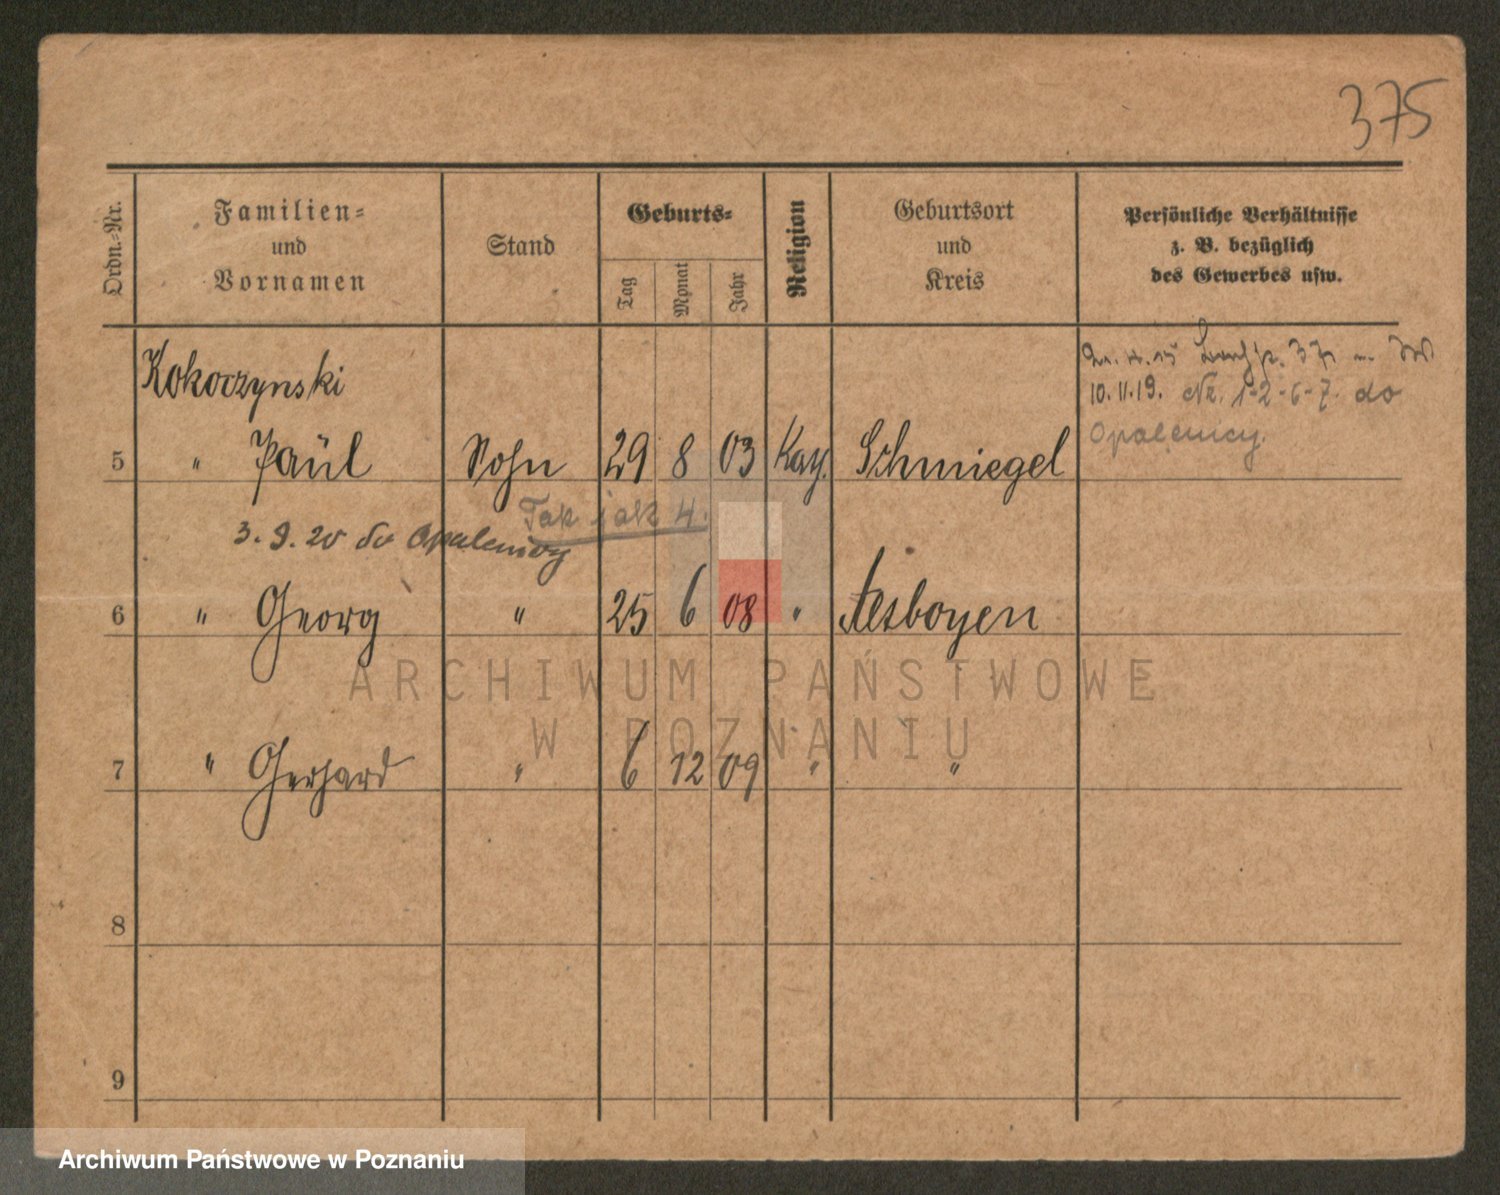 375
Ordn.-Nr.
Familien-
und
Vornamen
Stand
Geburts-
Tag
Monat
Jahr
Religion
Geburtsort
und
Kreis
Persönliche Verhältnisse
z. B. bezüglich
des Gewerbes usw.
Kokoczynski
10.11.19. Nr. 1-2-6-7 do
Opalenicy.
5 " Paul Sohn 29 8 03 Kath. Schmiegel
Tak jak 4.
3.9.20 do Opalenicy
6 " Georg " 25 6 08 "
7 " Gerhard " 6 12 09 " "
8
9
ARCHIWUM PAŃSTWOWE
W POZNANIU
Archiwum Państwowe w Poznaniu